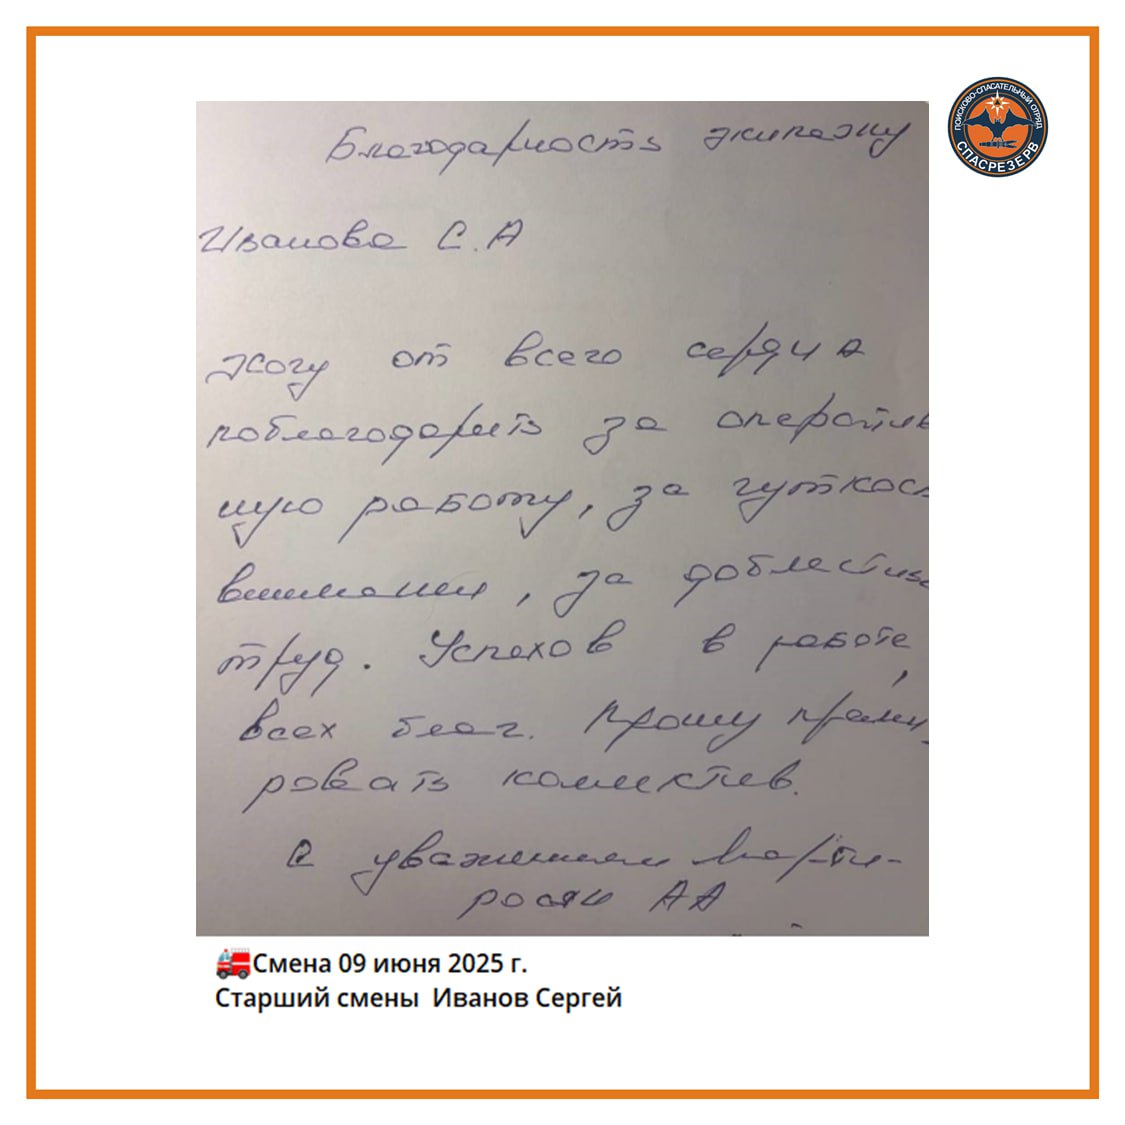 ПОИСКОВО-СПАСАТЕЛЬНЫЙ ОТРЯД
СПАСРЕЗЕРВ
Благодарность экипажу
Иванова С.А
Хочу от всего сердца
поблагодарить за оператив
ную работу, за чуткость
внимание, за доблестный
труд. Успехов в работе,
всех благ. Прошу преми-
ровать коллектив.
С уважением Марти-
росян АА
Смена 09 июня 2025 г.
Старший смены Иванов Сергей